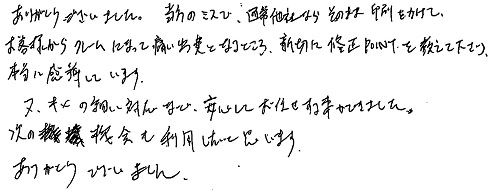 ありがとうございました。当方のミスで、通常他社ならそのまま印刷をかけて、
お客様からクレームになって痛い出費となるところ、親切に修正POINTを教えて下さり、
本当に感謝しています。
又、その他の細い対応など、安心してお任せする事ができました。
次の機会も利用したいと思います。
ありがとうございました。